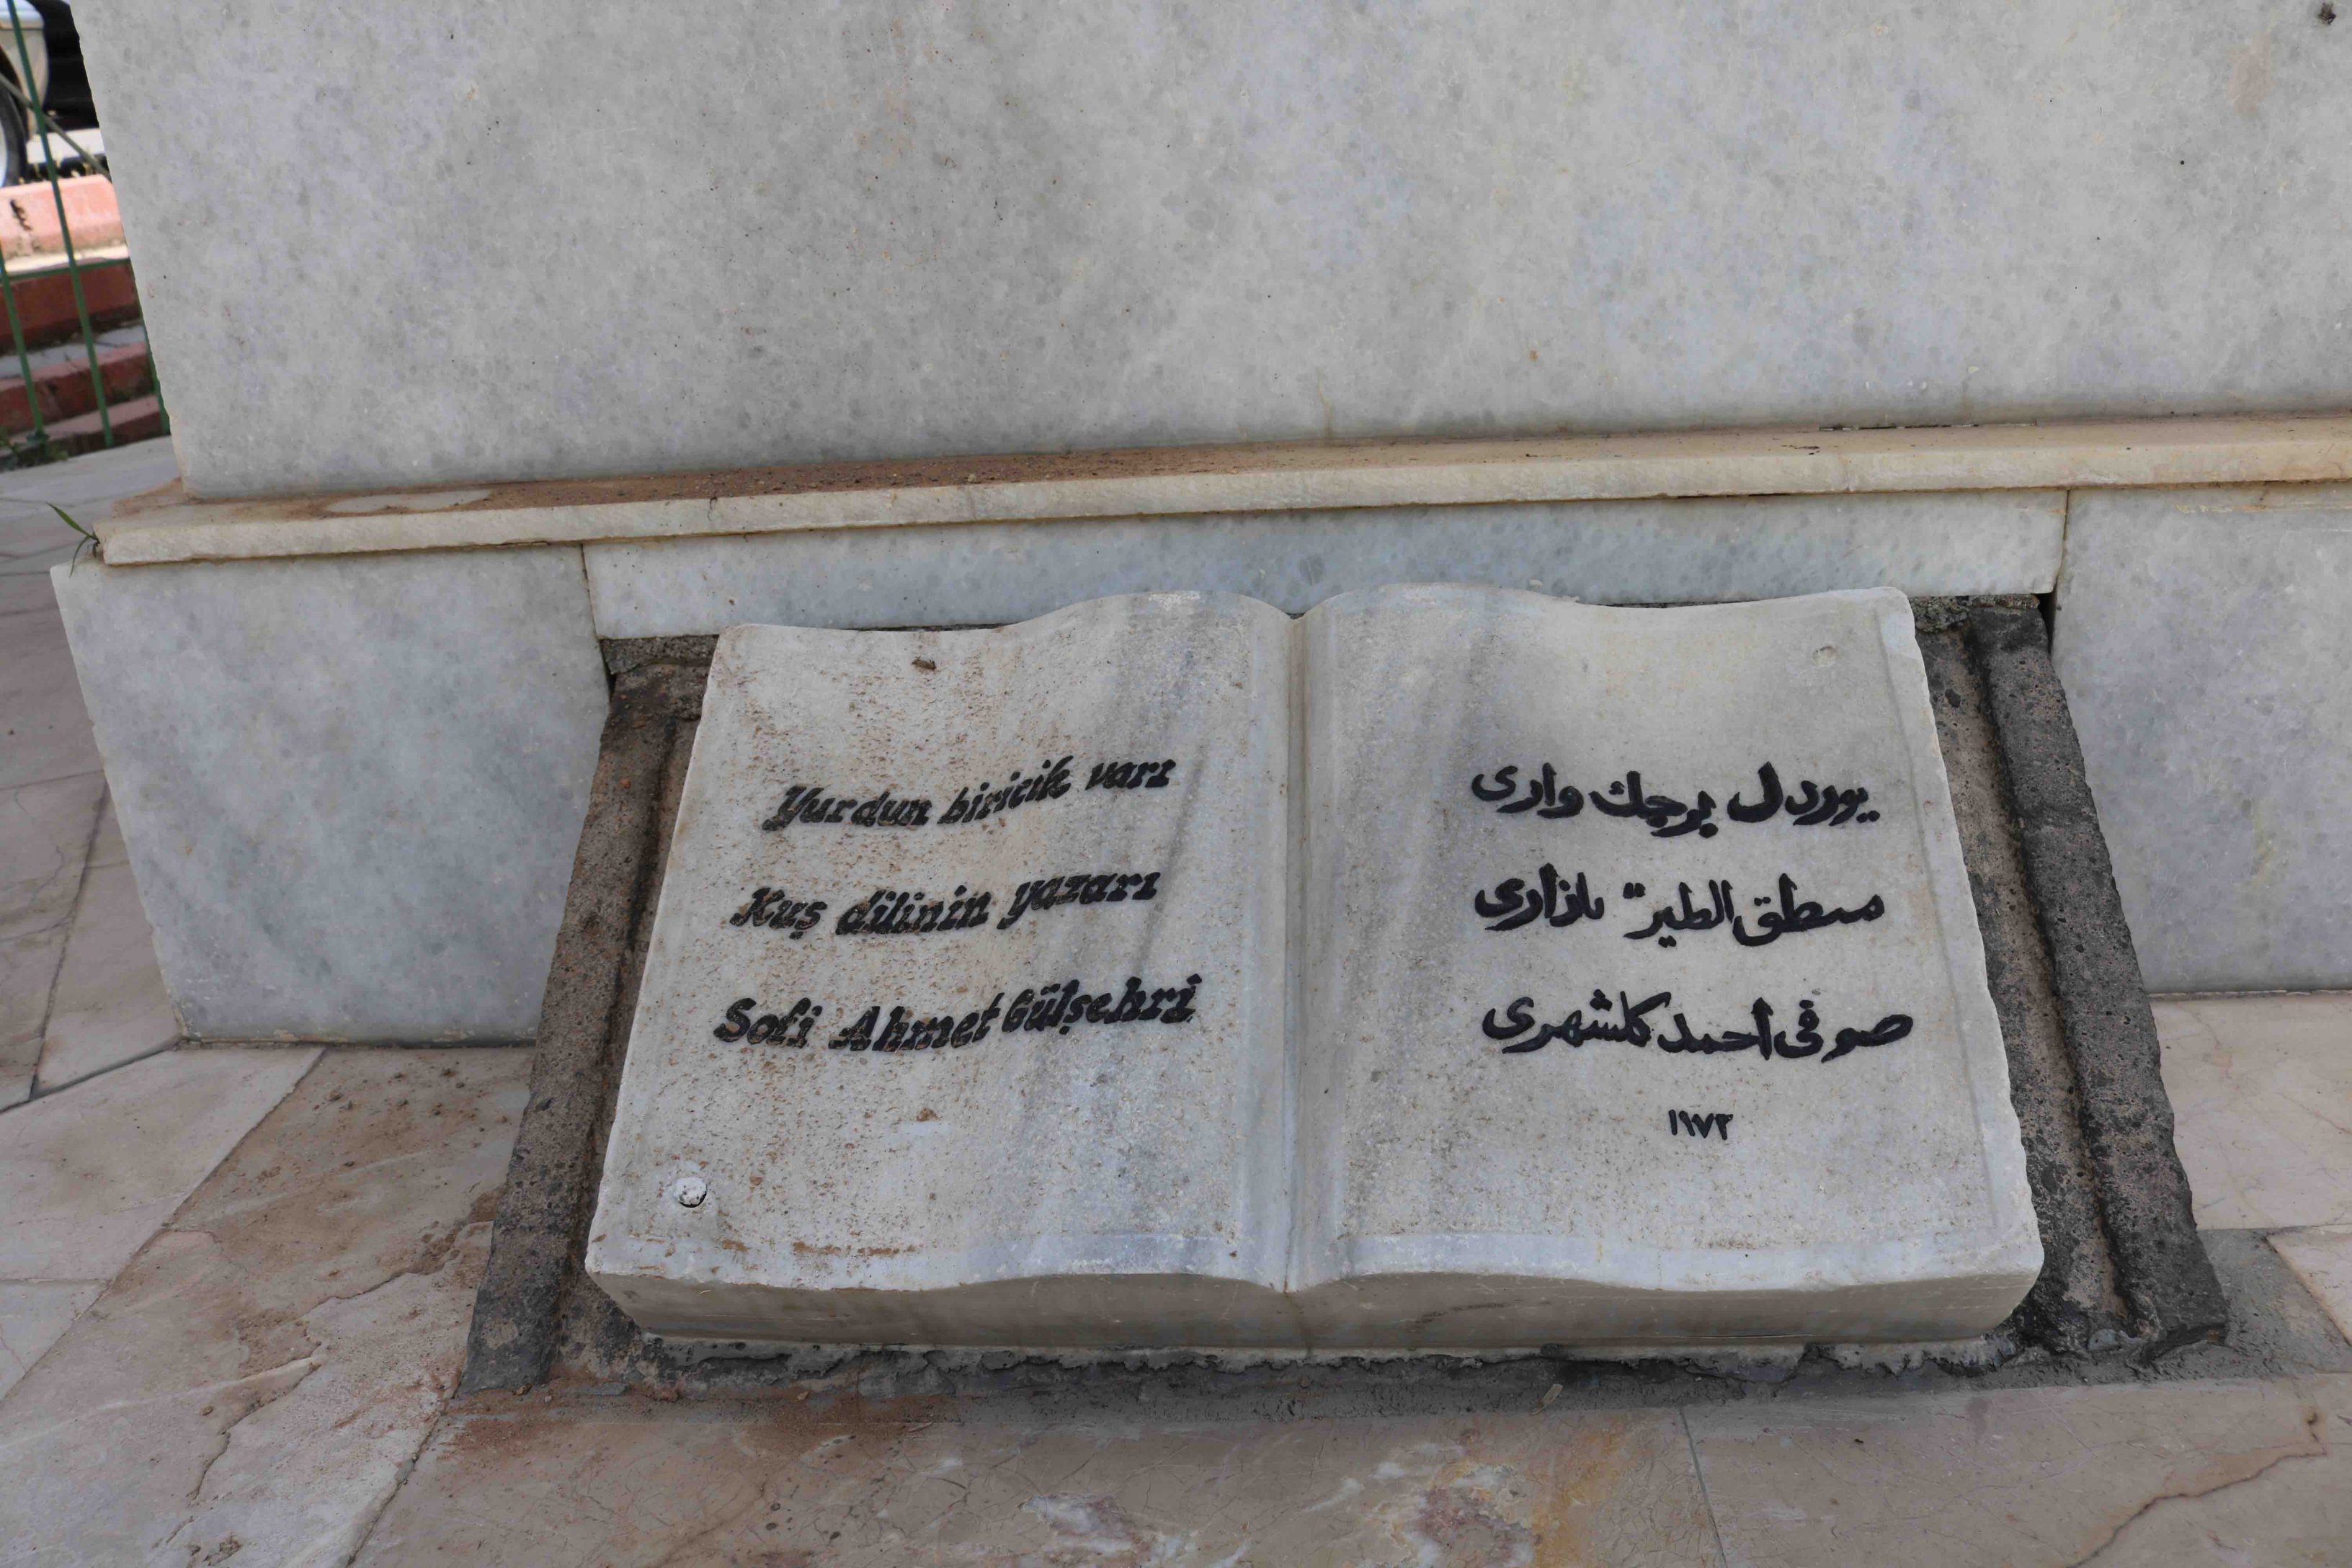 Yurdun biricik varı
Kuş dilinin yazarı
Sofi Ahmet Gülşehri
يوردل برجك وارى
منطق الطير" يازارى
صوفى أحمد كلشهرى
١٩٧٣